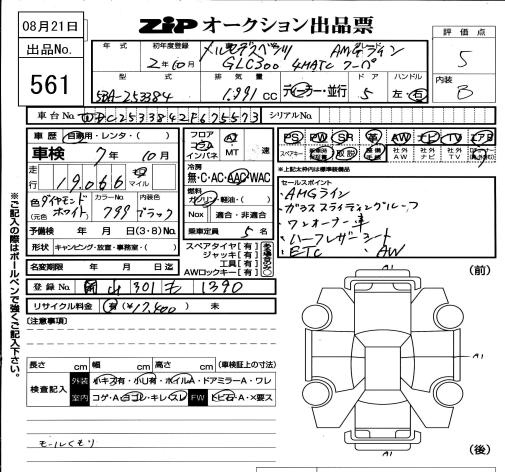 08月21日
ZIP オークション出品票
評価点
出品No.
561
年式
初年度登録
2年10月
車名
グレード
メルセデスベンツ AMGライン
GLC300 4MATC クーペ
5
内装
B
型式
排気量
ドア
ハンドル
5BA-253384
1,991 CC
ディーラー・並行
5
左・右
車台No. WDC2533842F675573
シリアルNo.
車歴 自家用・レンタ・( )
車検 7年 10月
走行 19,066 km マイル
色(元色) ダイヤモンドホワイト
カラーNo. 799
内装色 ブラック
予備検 年 月 日(3・8)No.
形状 キャンピング・放置車・事務室・( )
名変期限 年 月 日迄
登録No. 岡山 301 1390
リサイクル料金 有(¥17,400) 未
フロア
コラム
インパネ
AT
・MT 速
冷房
無・C・AC・AAC・WAC
燃料
ガソリン・軽油・( )
Nox 適合・非適合
乗車定員 5 名
スペアタイヤ[有]
ジャッキ[有]
工具[有]
AWロックキー[有]
PS PW SR 革 AW ナビ TV エアB
スペアキー 取説 社外AW 社外ナビ 社外TV
*上記太枠内は標準装備品
セールスポイント
・AMGライン
・ガラススライディングルーフ
・ワンオーナー車
・ハーフレザーシート
・ETC ・AW
※ご記入の際はボールペンで強くご記入下さい。
[注意事項]
(前)
A1
A1
A1
(後)
長さ cm 幅 cm 高さ cm (車検証上の寸法)
検査記入
外装 小キズ有・小U有・ホイルA・ドアミラーA・ワレ
室内 コゲ・A・ヨゴレ・キレ・スレ FW トビ石・A・×要ス
モールくもり